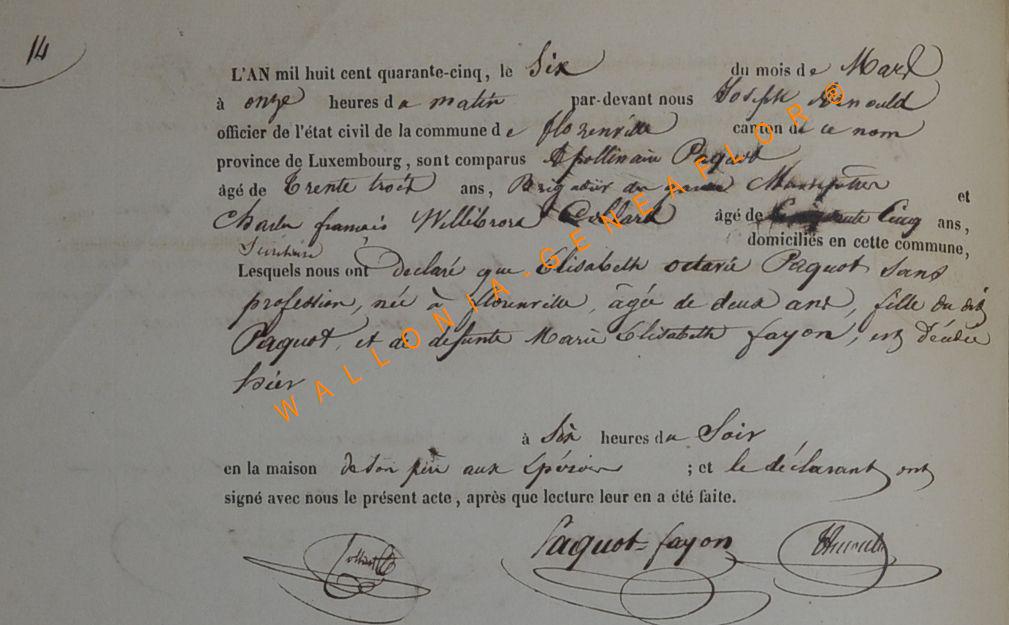 14
L'AN mil huit cent quarante-cinq, le Six du mois de Mars
à onze heures du matin par-devant nous Joseph Arnould
officier de l'état civil de la commune de florenville canton de ce nom
province de Luxembourg, sont comparus Apollinaire Paquot
âgé de Trente trois ans, Brigadier
et
Charles françois Willibrord Collard âgé de Cinq ans,
domiciliés en cette commune,
Lesquels nous ont Declaré que Elisabeth octavie Paquot sans
profession, née à florenville, âgée de deux ans, fille du dit
Paquot, et de defunte Marie Elisabeth fayon, est décédée
hier
à Six heures du Soir
en la maison de son père aux ; et le déclarant ont
signé avec nous le présent acte, après que lecture leur en a été faite.
Paquot=fayon
WALLONIA-GENEAFLOR®